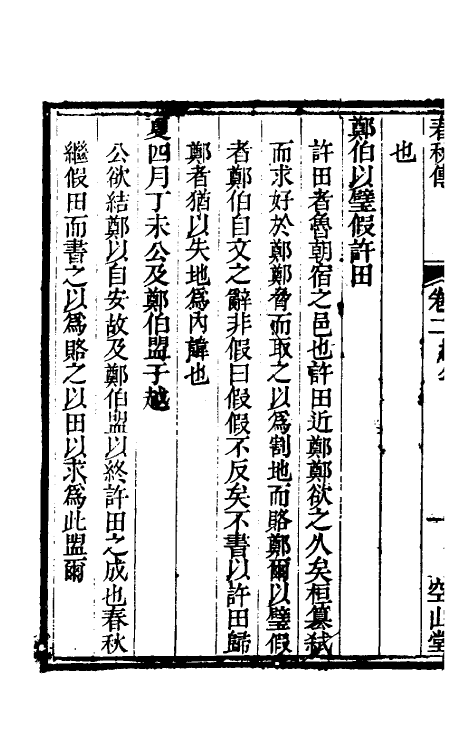 春秋傳 卷二 一 空山堂
也
鄭伯以璧假許田
許田者魯朝宿之邑也許田近鄭鄭欲之久矣桓簒弒
而求好於鄭鄭脅而取之以爲割地而賂鄭爾以璧假
者鄭伯自文之辭非假曰假假不反矣不書以許田歸
鄭者猶以失地爲內諱也
夏四月丁未公及鄭伯盟于越
公欲結鄭以自安故及鄭伯盟以終許田之成也春秋
繼假田而書之以爲賂之以田以求爲此盟爾